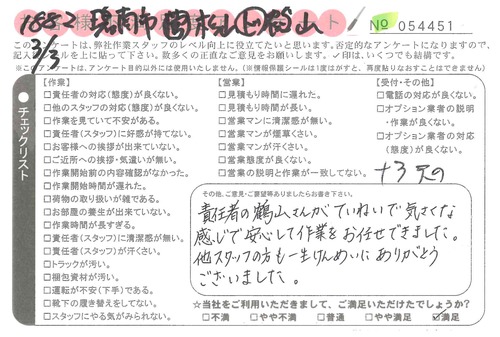 お客様アンケート No 054451
3/3
このアンケートは、弊社作業スタッフのレベル向上に役立てたいと思います。否定的なアンケートになりますので、
記入シールを上に貼って下さい。数多くの正直なご意見をお願いします。✓印は、いくつでも結構です。
※このアンケートは、アンケート目的以外には使用いたしません。(※情報保護シールは1度はがすと、再度貼りなおすことはできません)
●チェックリスト
【作業】
□責任者の対応(態度)が良くない。
□他のスタッフの対応(態度)が良くない。
□作業を見ていて不安がある。
□責任者(スタッフ)に好感が持てない。
□お客様への挨拶が出来ていない。
□ご近所への挨拶・気遣いが無い。
□作業開始前の内容確認がなかった。
□作業開始時間が遅れた。
□荷物の取り扱いが雑である。
□お部屋の養生が出来ていない。
□作業時間が長すぎる。
□責任者(スタッフ)に清潔感が無い。
□責任者(スタッフ)が汗くさい。
□トラックが汚い。
□梱包資材が汚い。
□運転が不安(下手)である。
□靴下の履き替えをしてない。
□スタッフにやる気がみられない。
【営業】
□見積り時間に遅れた。
□見積もり時間が長い。
□営業マンに清潔感が無い。
□営業マンが煙草くさい。
□営業マンが汗くさい。
□営業態度が良くない。
□営業の説明と作業が一致してない。
【受付・その他】
□電話の対応が良くない。
□オプション業者の説明
・作業が良くない。
□オプション業者の対応
(態度)が良くない。
その他、ご意見・ご要望等ありましたらお書き下さい。
責任者の鶴山さんがていねいで気さくな
感じで安心して作業をお任せできました。
他スタッフの方も一生けんめいにありがとう
ございました。
☆当社をご利用いただきまして、ご満足いただけたでしょうか?
□不満 □やや不満 □普通 □やや満足 ☑満足